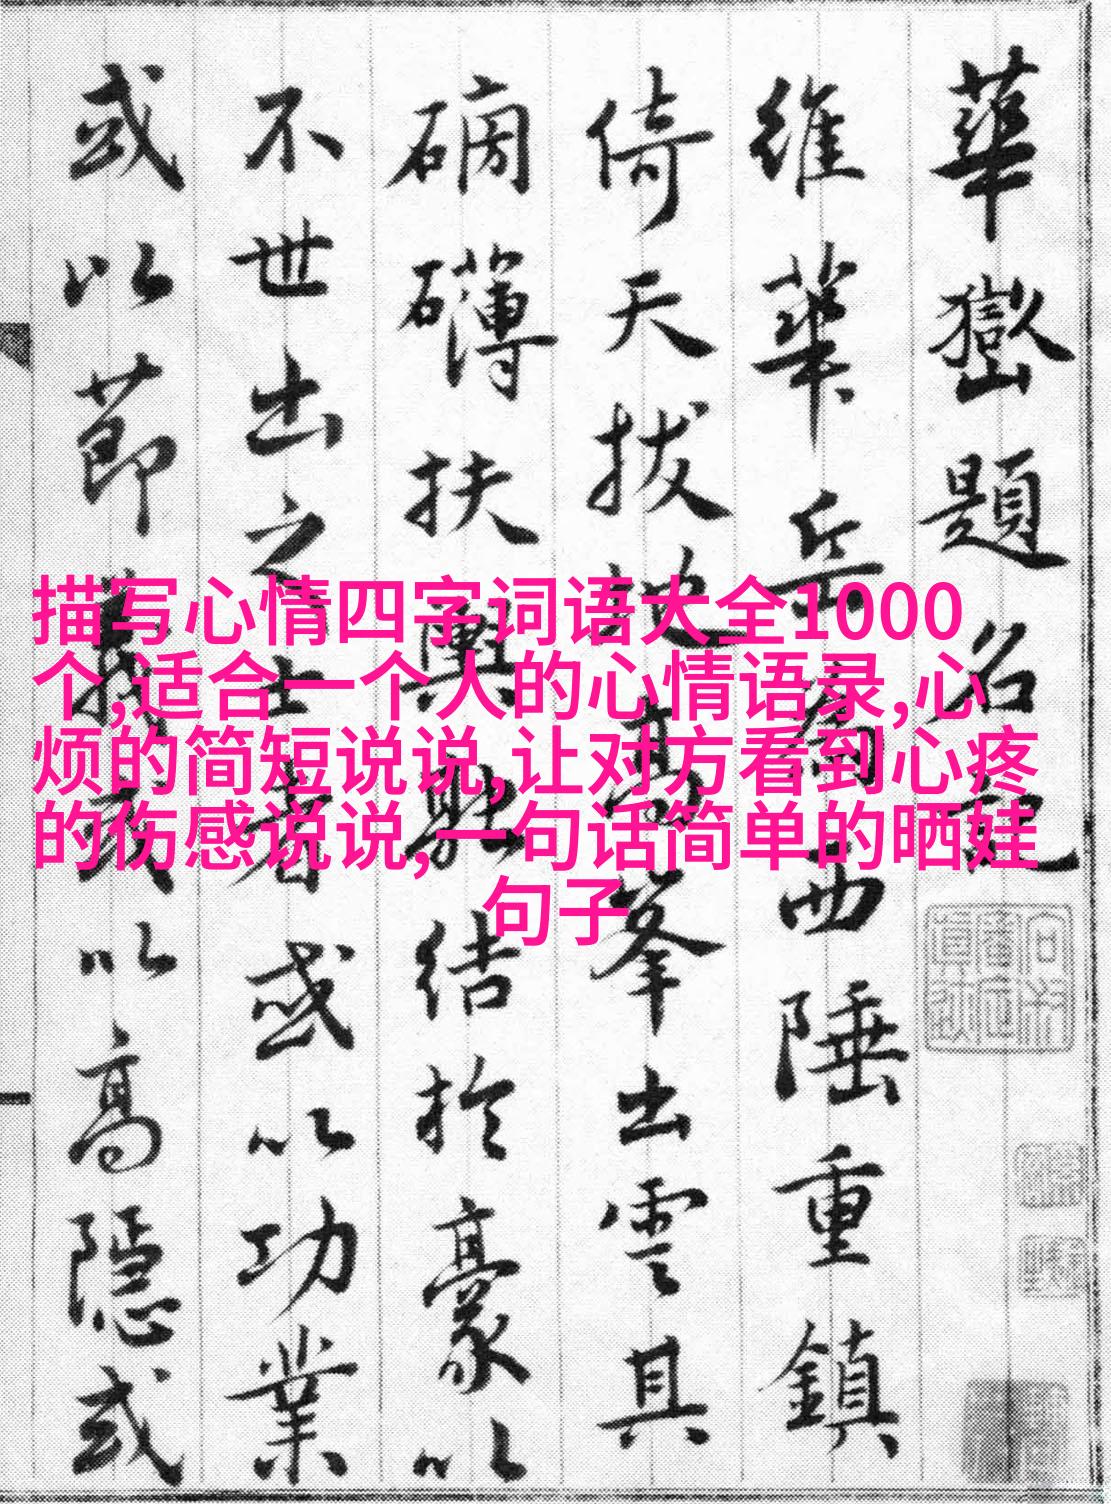 華嶽題名記
維華岳為西陲重鎮
倚天拔地高峯出雲其
磅礴扶輿結於豪以
不世出之士者或以功業
或以節義或以高隱或
描写心情四字词语大全1000
个,适合一个人的心情语录,心
烦的简短说说,让对方看到心疼
的伤感说说,一句话简单的晒娃
句子